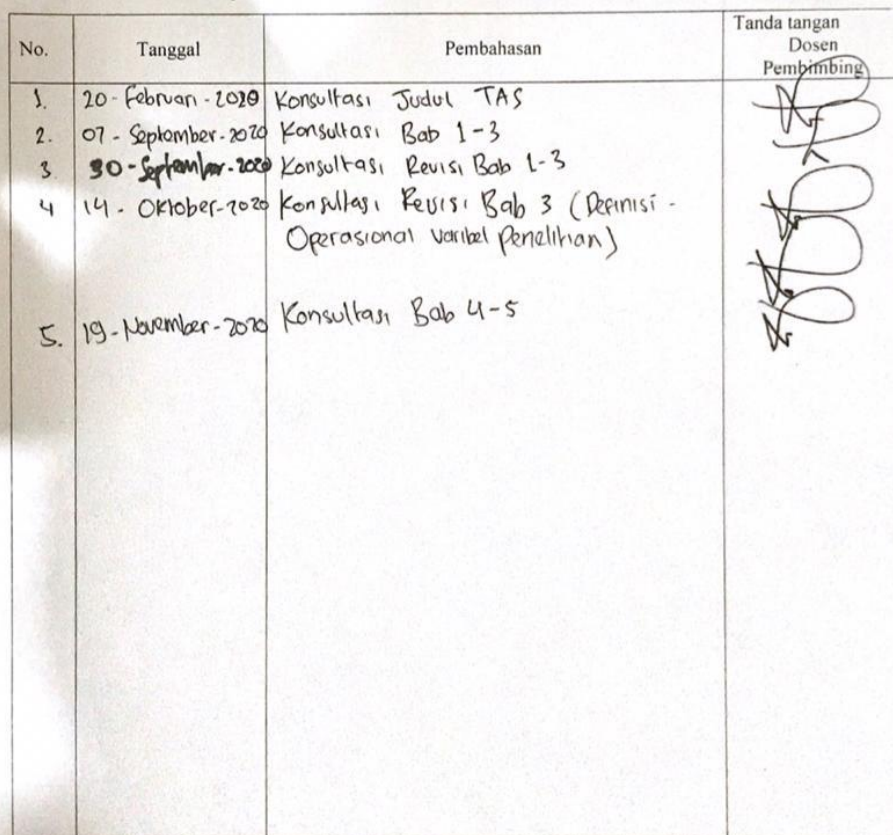 No. Tanggal Pembahasan Tanda tangan
Dosen
Pembimbing
1. 20-Februari-2020 Konsultasi Judul TAS
2. 07-September-2020 Konsultasi Bab 1-3
3 30-September-2020 Konsultasi Revisi Bab 1-3
4 14-Oktober-2020 Konsultasi Revisi Bab 3 (Definisi -
Operasional Varibel Penelitian)
5. 19-November-2020 Konsultasi Bab 4-5